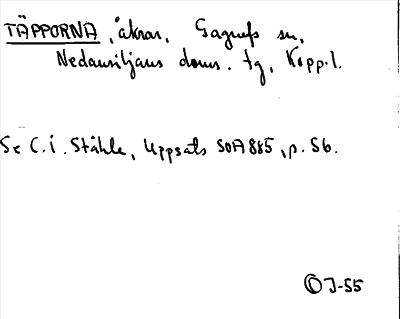 TÄPPORNA, åkrar, Gagnefs sn,
Nedansiljans doms. tg, Kopp. l.
Se C. I. Ståhle, Uppsats SOA 885, p. 56.
J-55